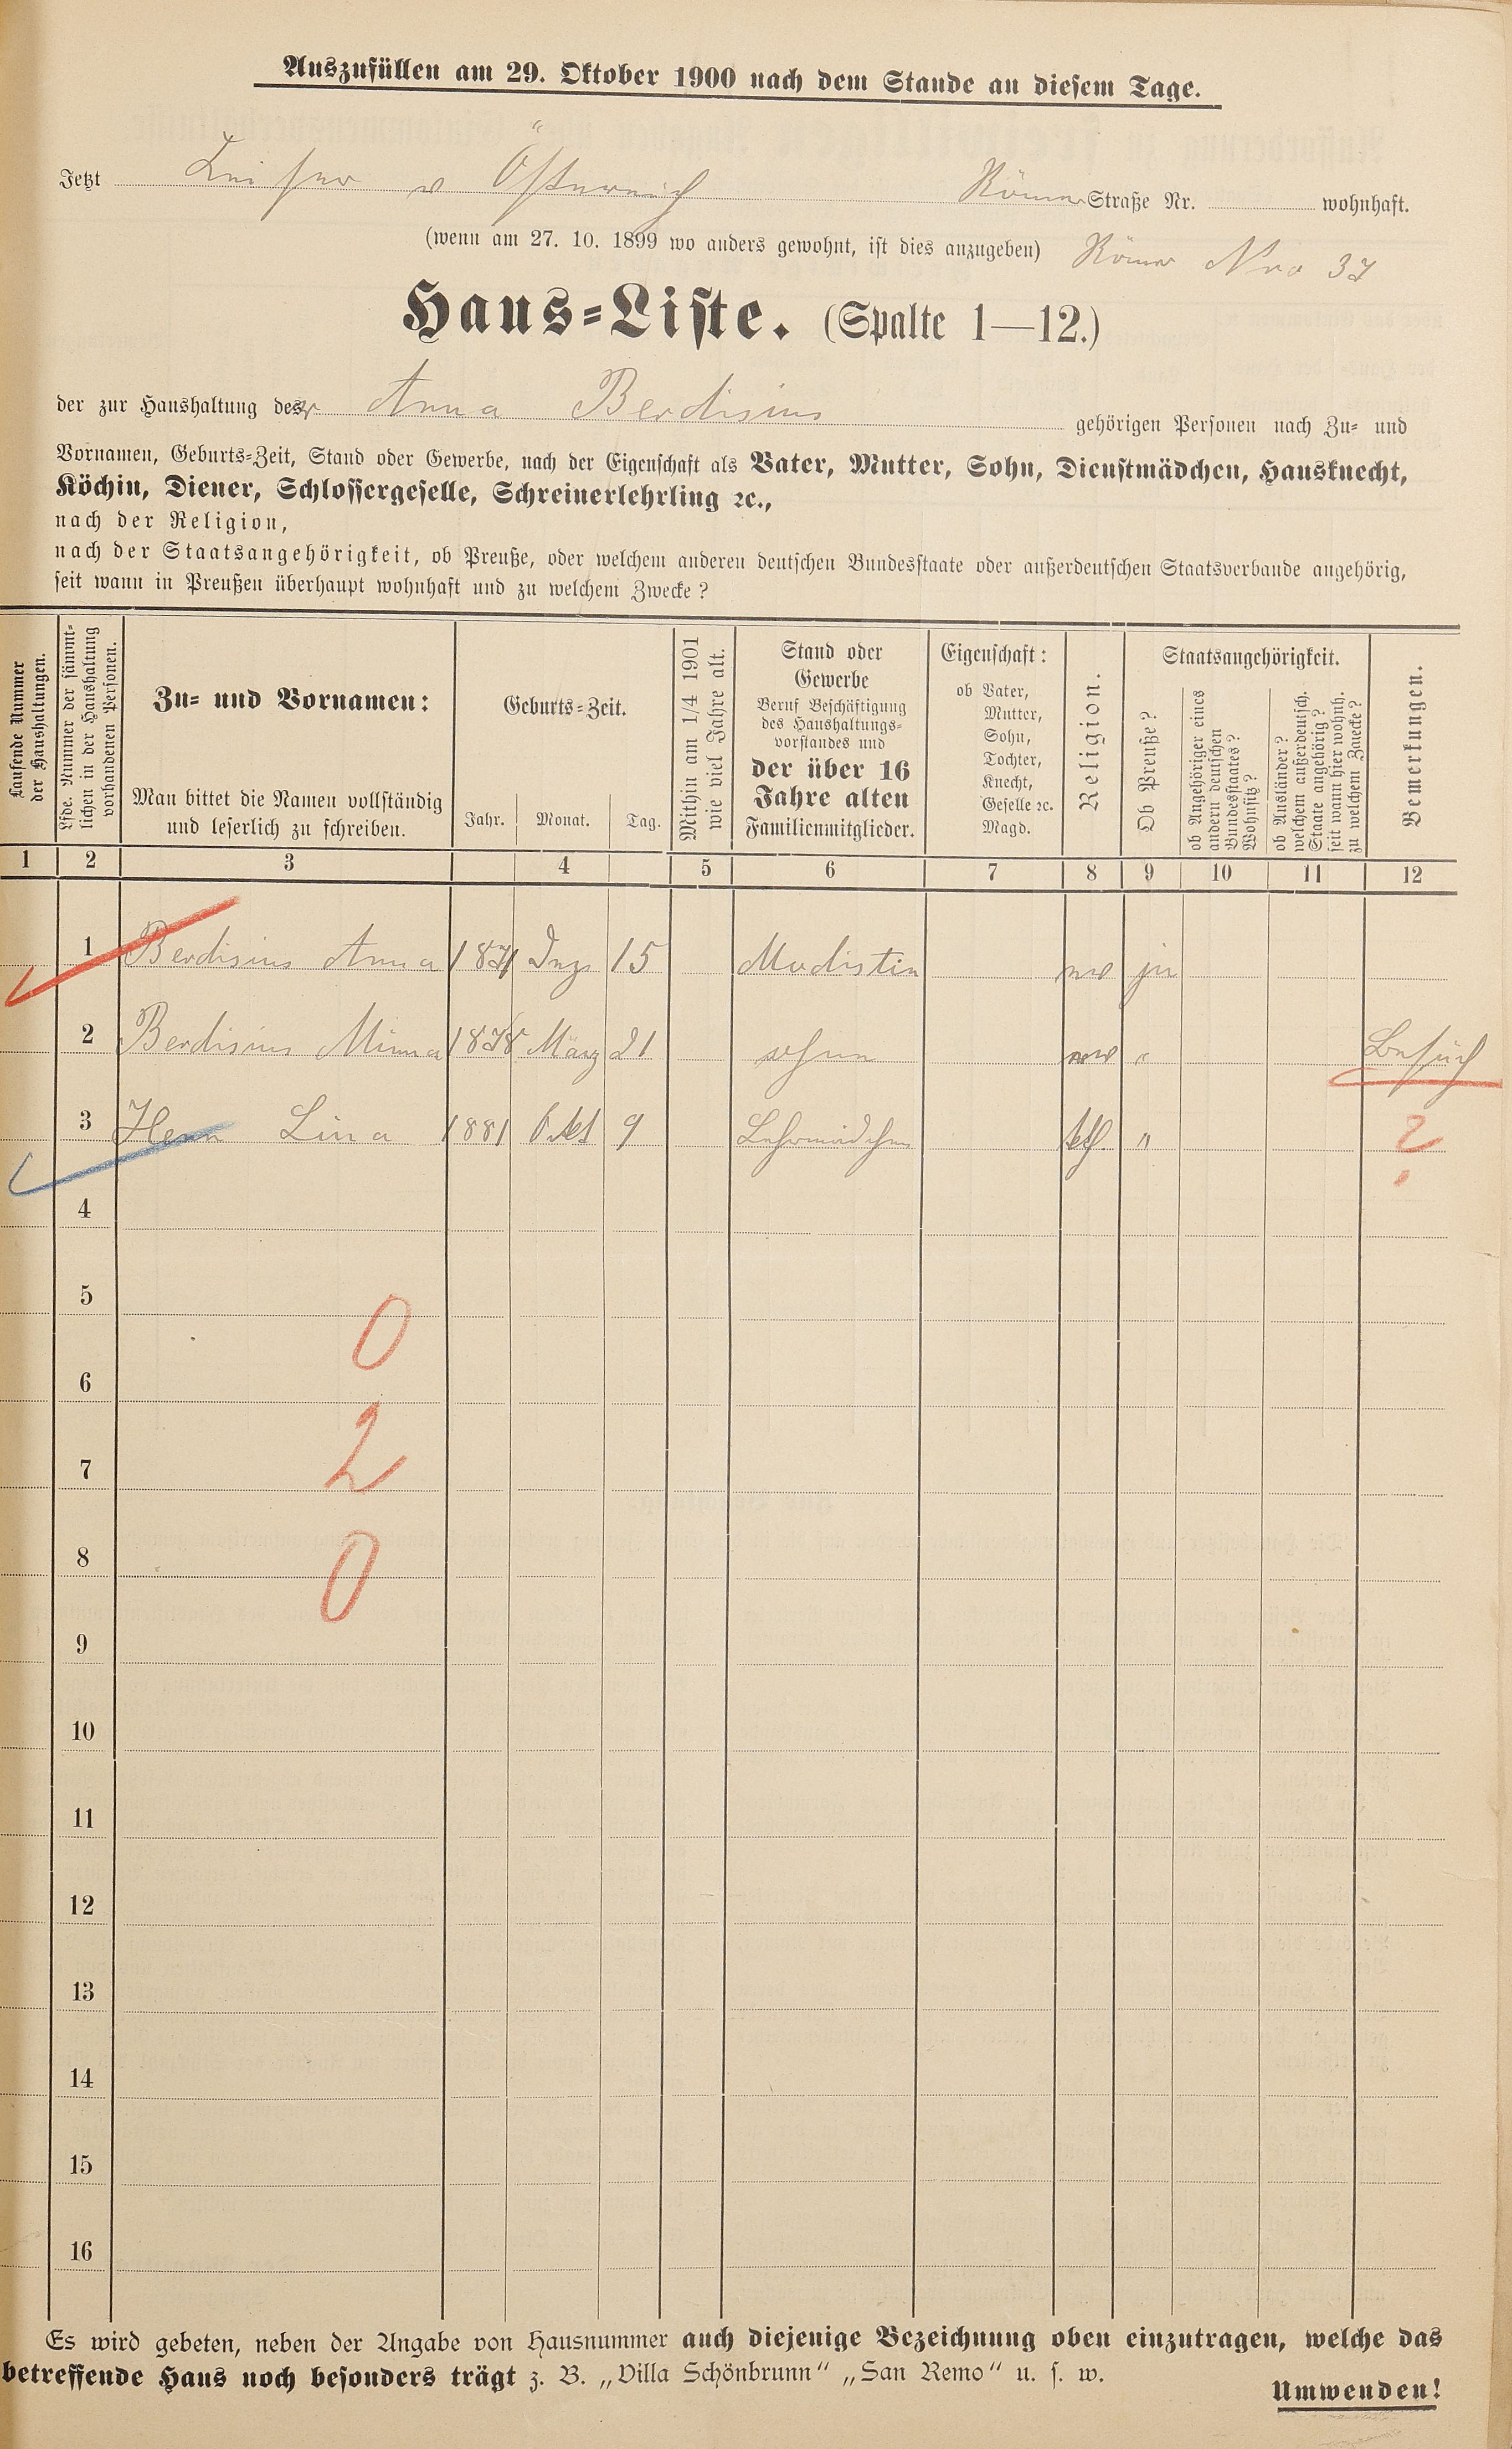 Auszufüllen am 29. Oktober 1900 nach dem Stande an diesem Tage.
Jetzt Keiser v Östereich Römer Straße Nr. wohnhaft.
(wenn am 27. 10. 1899 wo anders gewohnt, ist dies anzugeben) Römer Nro 37
Haus-Liste. (Spalte 1—12.)
der zur Haushaltung der Anna Berdisius gehörigen Personen nach Zu- und
Vornamen, Geburts-Zeit, Stand oder Gewerbe, nach der Eigenschaft als Vater, Mutter, Sohn, Dienstmädchen, Hausknecht,
Köchin, Diener, Schlossergeselle, Schreinerlehrling ec.,
nach der Religion,
nach der Staatsangehörigkeit, ob Preuße, oder welchem anderen deutschen Bundesstaate oder außerdeutschen Staatsverbande angehörig,
seit wann in Preußen überhaupt wohnhaft und zu welchem Zwecke?
Laufende Nummer
der Haushaltungen.
Lfde. Nummer der sämmt-
lichen in der Haushaltung
vorhandenen Personen.
Zu- und Vornamen:
Man bittet die Namen vollständig
und leserlich zu schreiben.
Geburts-Zeit.
Jahr. Monat. Tag.
Mithin am 1/4 1901
wie viel Jahre alt.
Stand oder
Gewerbe
Beruf Beschäftigung
des Haushaltungs-
vorstandes und
der über 16
Jahre alten
Familienmitglieder.
Eigenschaft:
ob Vater,
Mutter,
Sohn,
Tochter,
Knecht,
Geselle ec.
Magd.
Religion.
Staatsangehörigkeit.
Ob Preuße?
ob Angehöriger eines
andern deutschen
Bundesstaates?
Wohnsitz?
ob Ausländer?
welchem außerdeutsch.
Staate angehörig?
seit wann hier wohnh.
zu welchem Zwecke?
Bemerkungen.
1 2 3 4 5 6 7 8 9 10 11 12
1 Berdisius Anna 1871 15 Modistin ja
2 Berdisius Minna 1878 März 21 ohne " Besuch
3 Henn Lina 1881 Okt 9 Lehrmädchen kth. " ?
4
5
0
6
2
7
8
0
9
10
11
12
13
14
15
16
Es wird gebeten, neben der Angabe von Hausnummer auch diejenige Bezeichnung oben einzutragen, welche das
betreffende Haus noch besonders trägt z. B. „Villa Schönbrunn“ „San Remo“ u. s. w.
Umwenden!